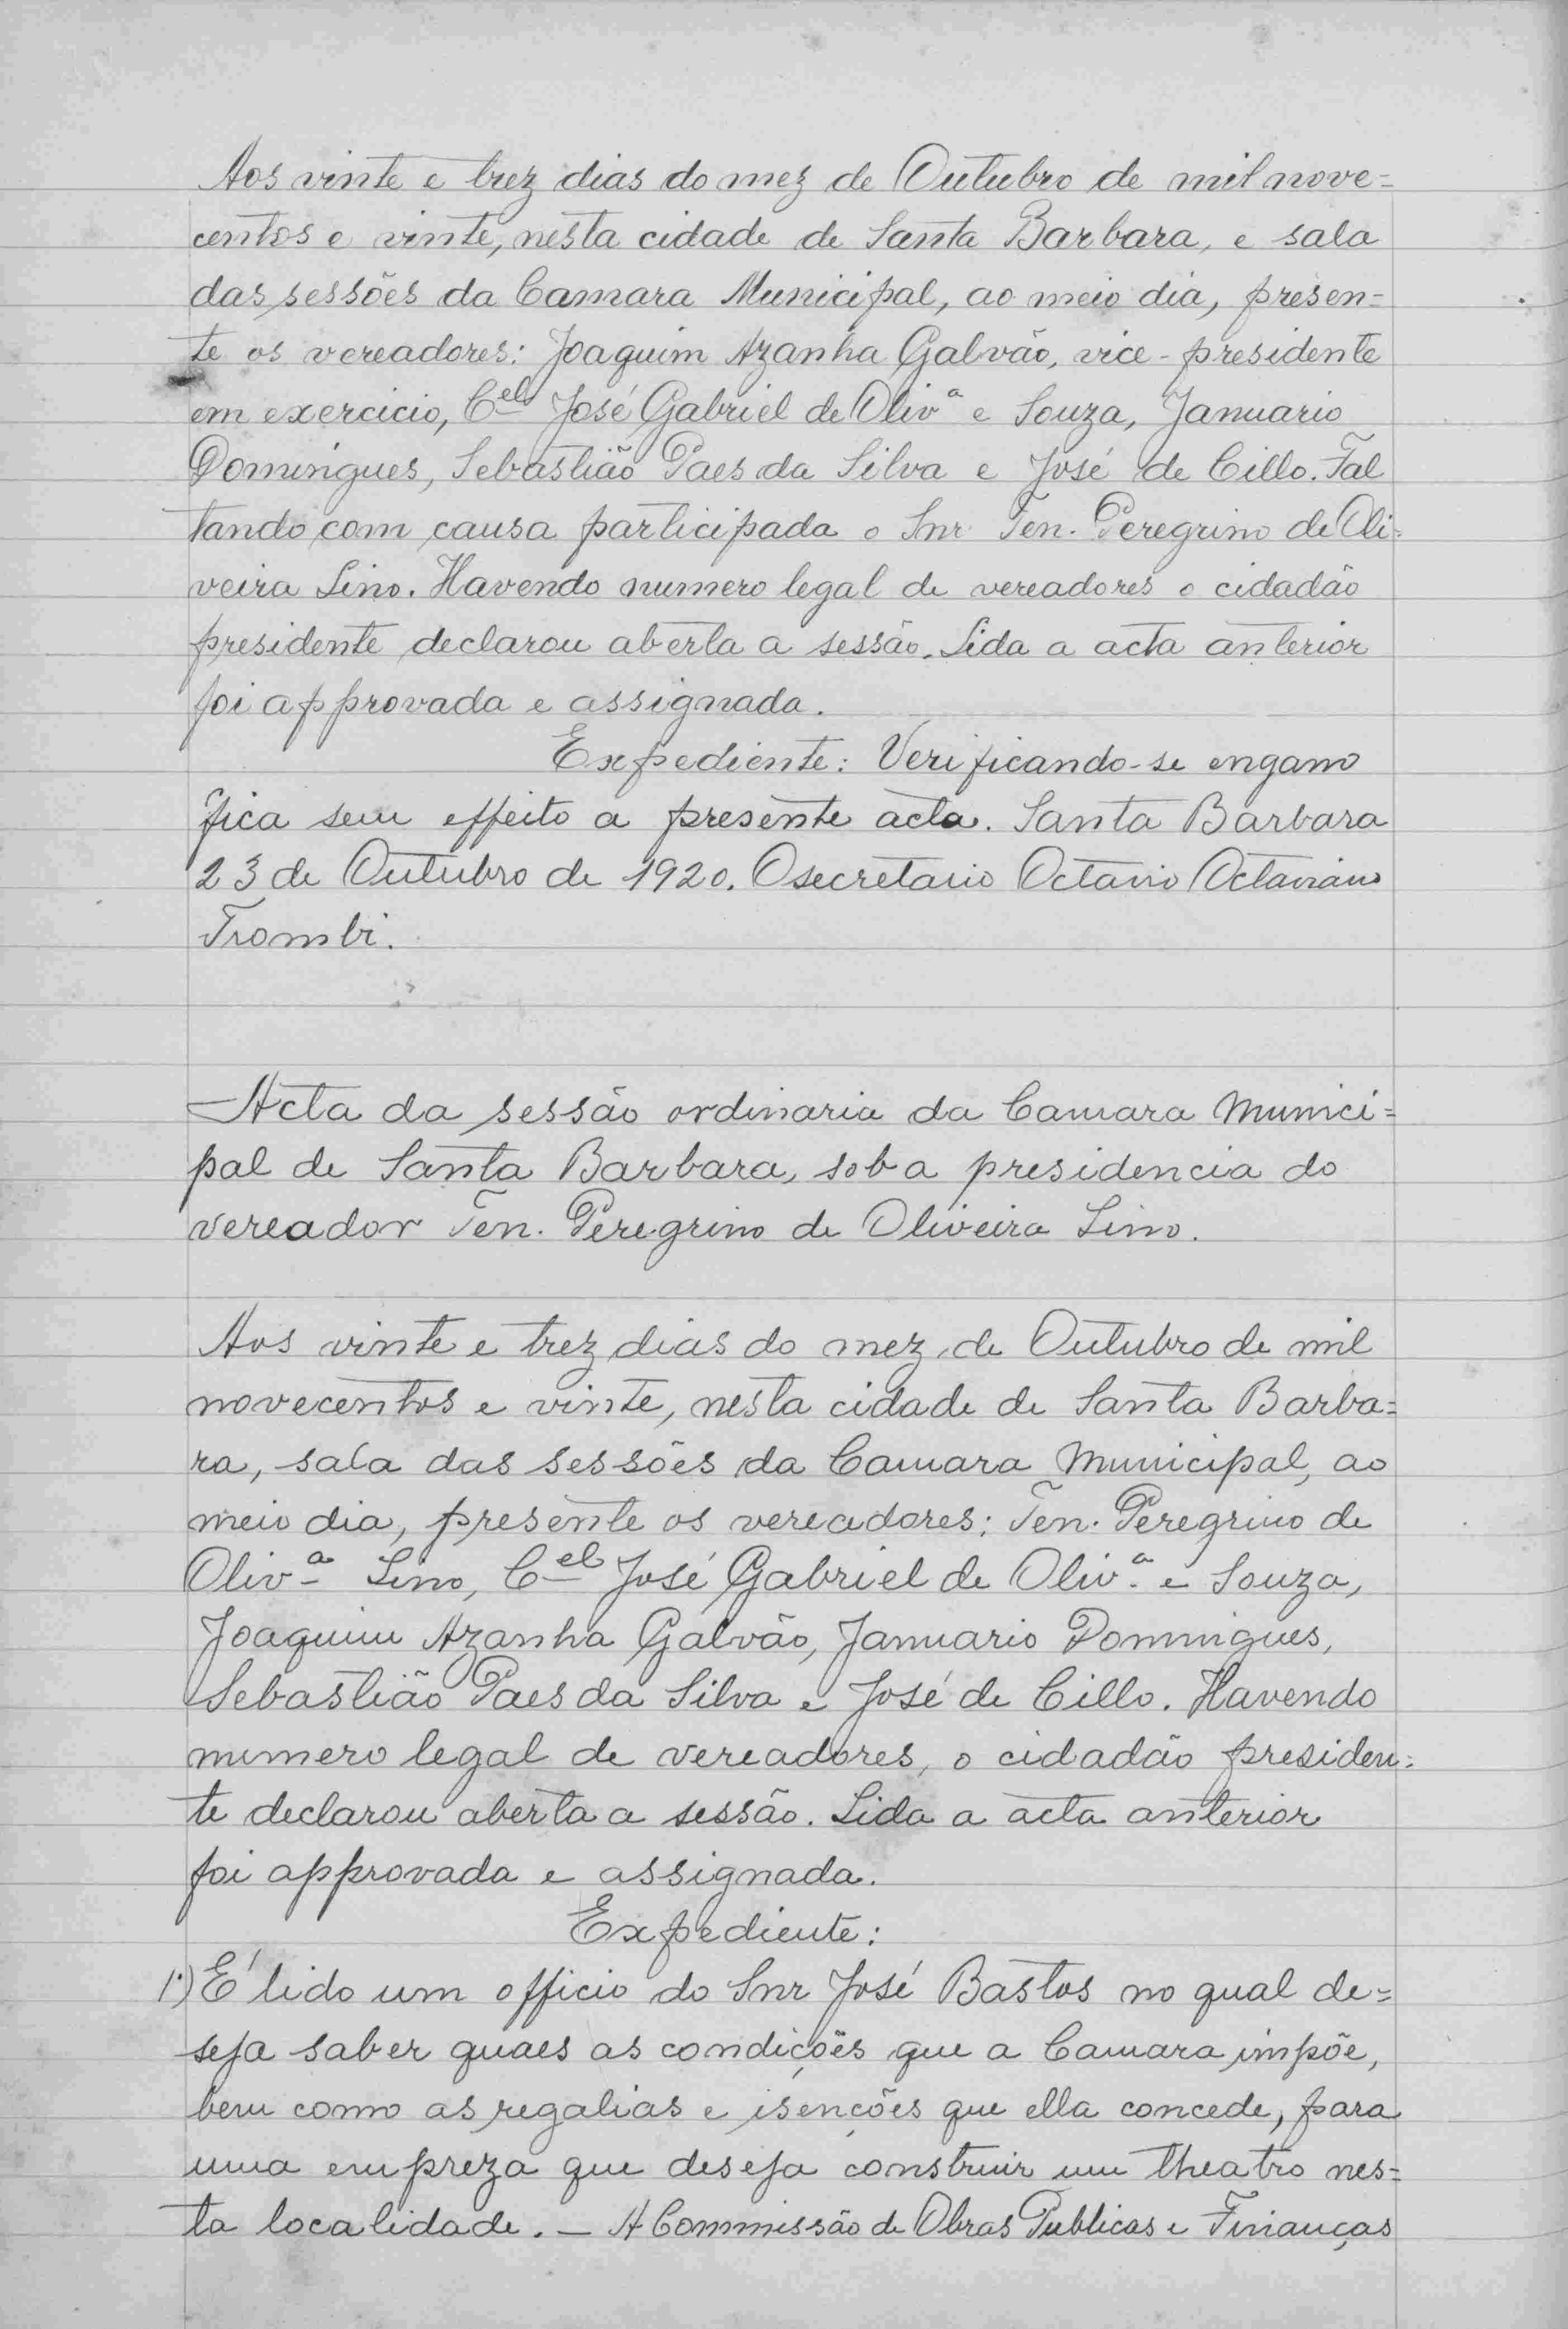 Aos vinte e trez dias do mez de Outubro de mil nove=
centos e vinte, nesta cidade de Santa Barbara, e sala
das sessões da Camara Municipal, ao meio dia, presen=
te os vereadores: Joaquim Azanha Galvão, vice-presidente
em exercicio, Cel José Gabriel de Olivª e Souza, Januario
Domingues, Sebastião Paes da Silva e José de Cillo. Fal
tando com causa participada o Snr Ten. Peregrino de Oli=
veira Lino. Havendo numero legal de vereadores o cidadão
presidente declarou aberta a sessão. Lida a acta anterior
foi approvada e assignada.
Expediente: Verificando-se engano
fica sem effeito a presente acta. Santa Barbara
23 de Outubro de 1920. O secretario Octavio Octaviano
Trombi.
Acta da sessão ordinaria da Camara Munici=
pal de Santa Barbara, sob a presidencia do
vereador Ten. Peregrino de Oliveira Lino.
Aos vinte e trez dias do mez de Outubro de mil
novecentos e vinte, nesta cidade de Santa Barba=
ra, sala das sessões da Camara Municipal, ao
meio dia, presente os vereadores: Ten. Peregrino de
Olivª Lino, Cel José Gabriel de Olivª e Souza,
Joaquim Azanha Galvão, Januario Domingues,
Sebastião Paes da Silva e José de Cillo. Havendo
numero legal de vereadores, o cidadão presiden=
te declarou aberta a sessão. Lida a acta anterior
foi approvada e assignada.
Expediente:
1º) É lido um officio do Snr José Bastos no qual de=
seja saber quaes as condições que a Camara impõe,
bem como as regalias e isenções que ella concede, para
uma empreza que deseja construir um theatro nes=
ta localidade. — A Commissão de Obras Publicas e Finanças